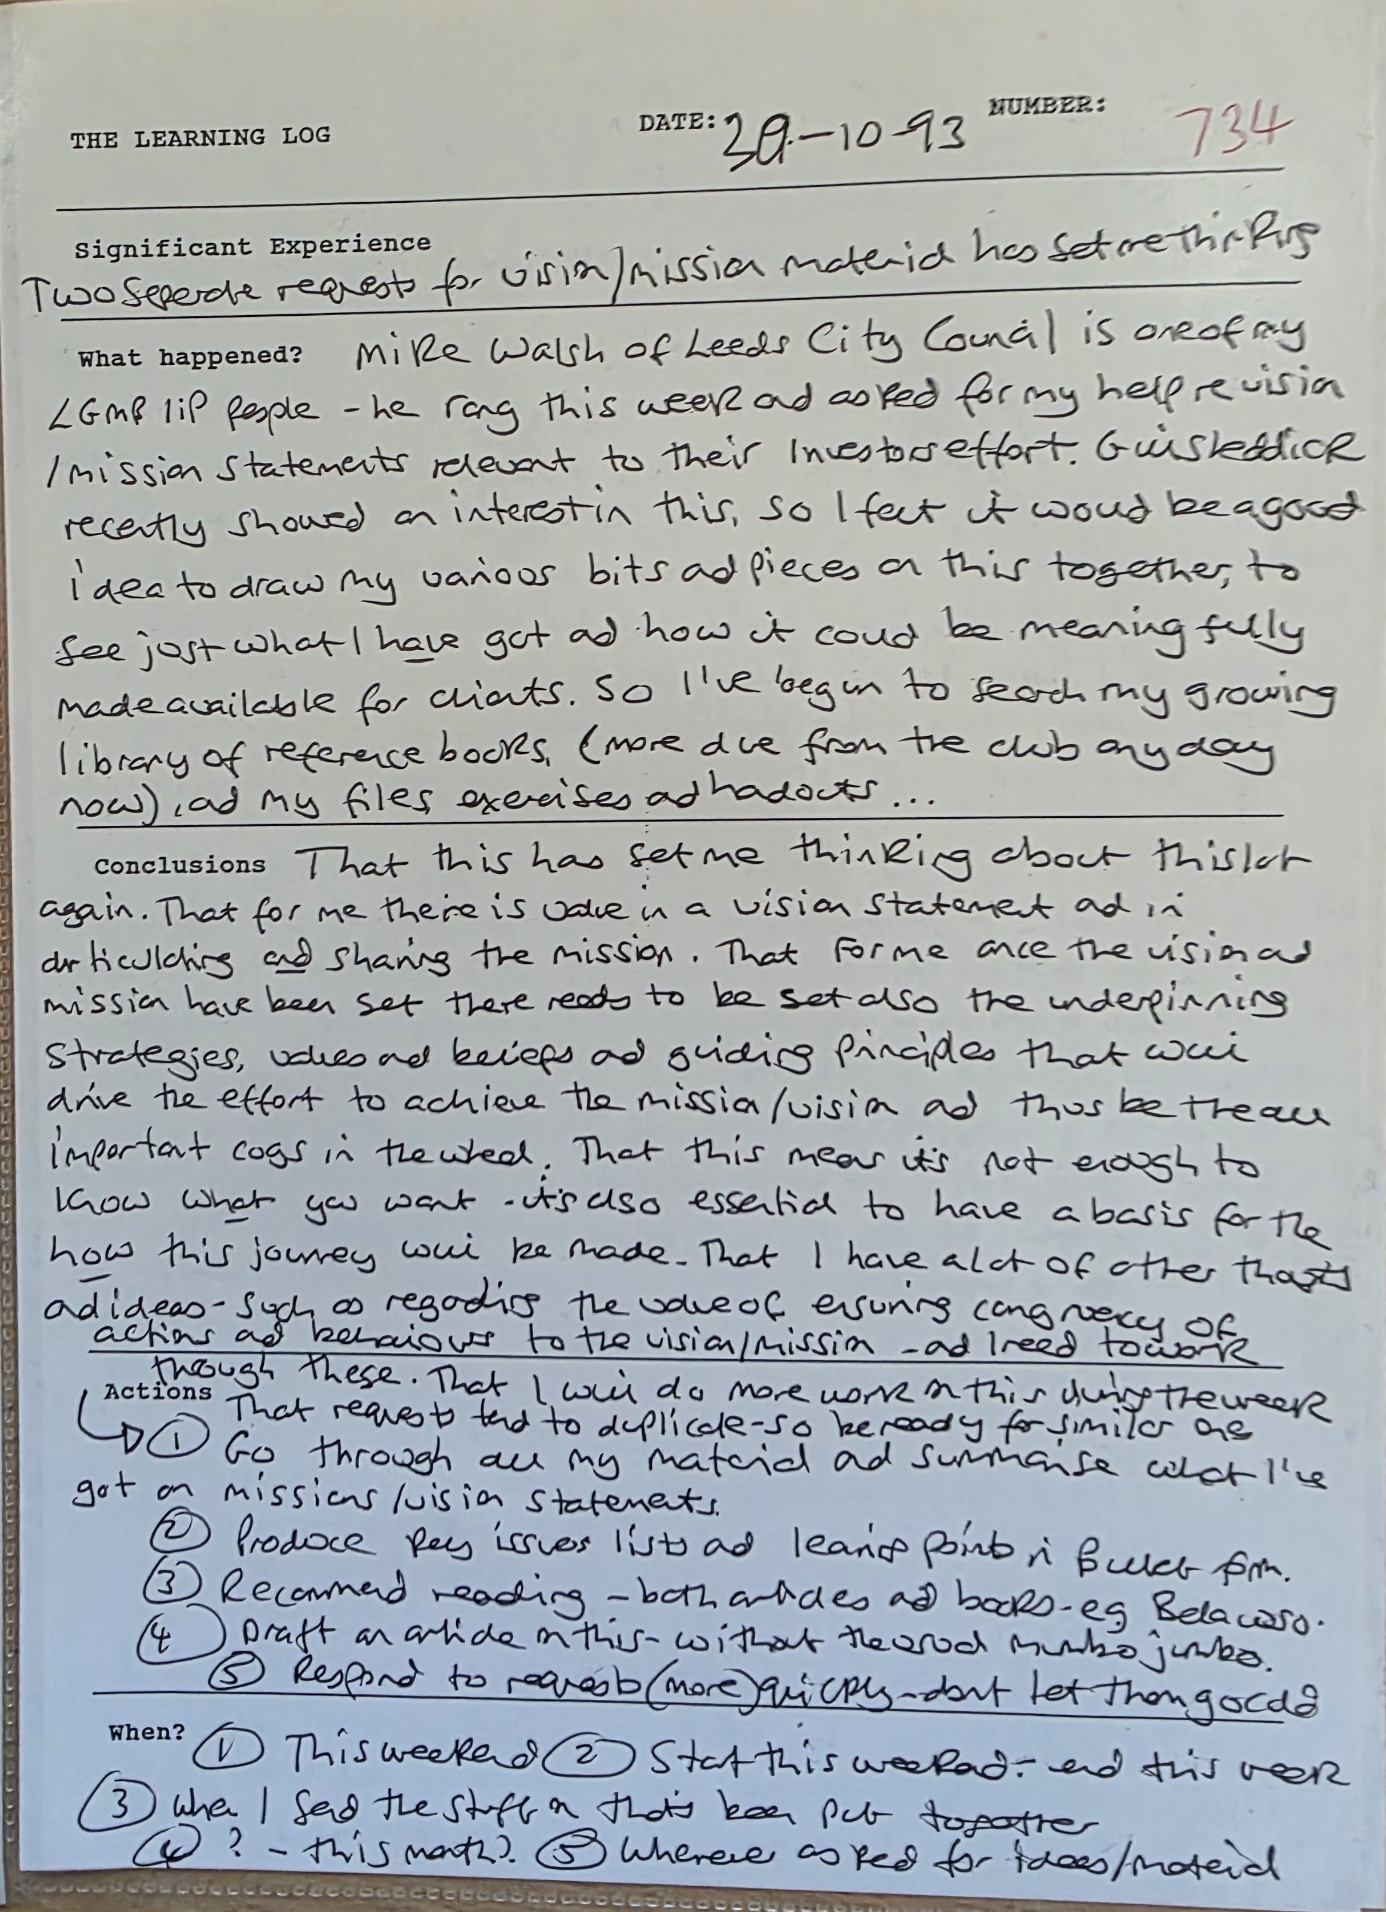 THE LEARNING LOG DATE: 30-10-93 NUMBER: 734
Significant Experience
Two seperate requests for vision/mission material has set me thinking
What happened? Mike Walsh of Leeds City Council is one of my
LGMB IiP people - he rang this week and asked for my help re vision
/mission statements relevant to their Investors effort.
recently showed an interest in this, so I felt it would be a good
idea to draw my various bits and pieces on this together, to
see just what I have got and how it could be meaningfully
made available for clients. So I've begun to search my growing
library of reference books, (more due from the club any day
now), and my files, exercises and handouts...
Conclusions That this has set me thinking about this lot
again. That for me there is value in a vision statement and in
articulating and sharing the mission. That for me once the vision and
mission have been set there needs to be set also the underpinning
strategies, values and beliefs and guiding principles that will
drive the effort to achieve the mission/vision and thus be the all
important cogs in the wheel. That this means it's not enough to
know what you want - it's also essential to have a basis for the
how this journey will be made. That I have a lot of other thoughts
and ideas - such as regarding the value of ensuring congruency of
actions and behaviours to the vision/mission - and I need to work
through these. That I will do more work on this during the week
Actions That requests tend to duplicate - so be ready for similar ones
① Go through all my material and summarise what I've
got on missions/vision statements.
② Produce key issues lists and learning points in Bullet form.
③ Recommend reading - both articles and books - eg Belacasso.
④ Draft an article on this - without the mumbo jumbo.
⑤ Respond to requests (more) quickly - don't let them go cold
When? ① This weekend ② Start this weekend - end this week
③ When I send the stuff on that's been put together
④ ? - this month?. ⑤ Whenever asked for ideas/material